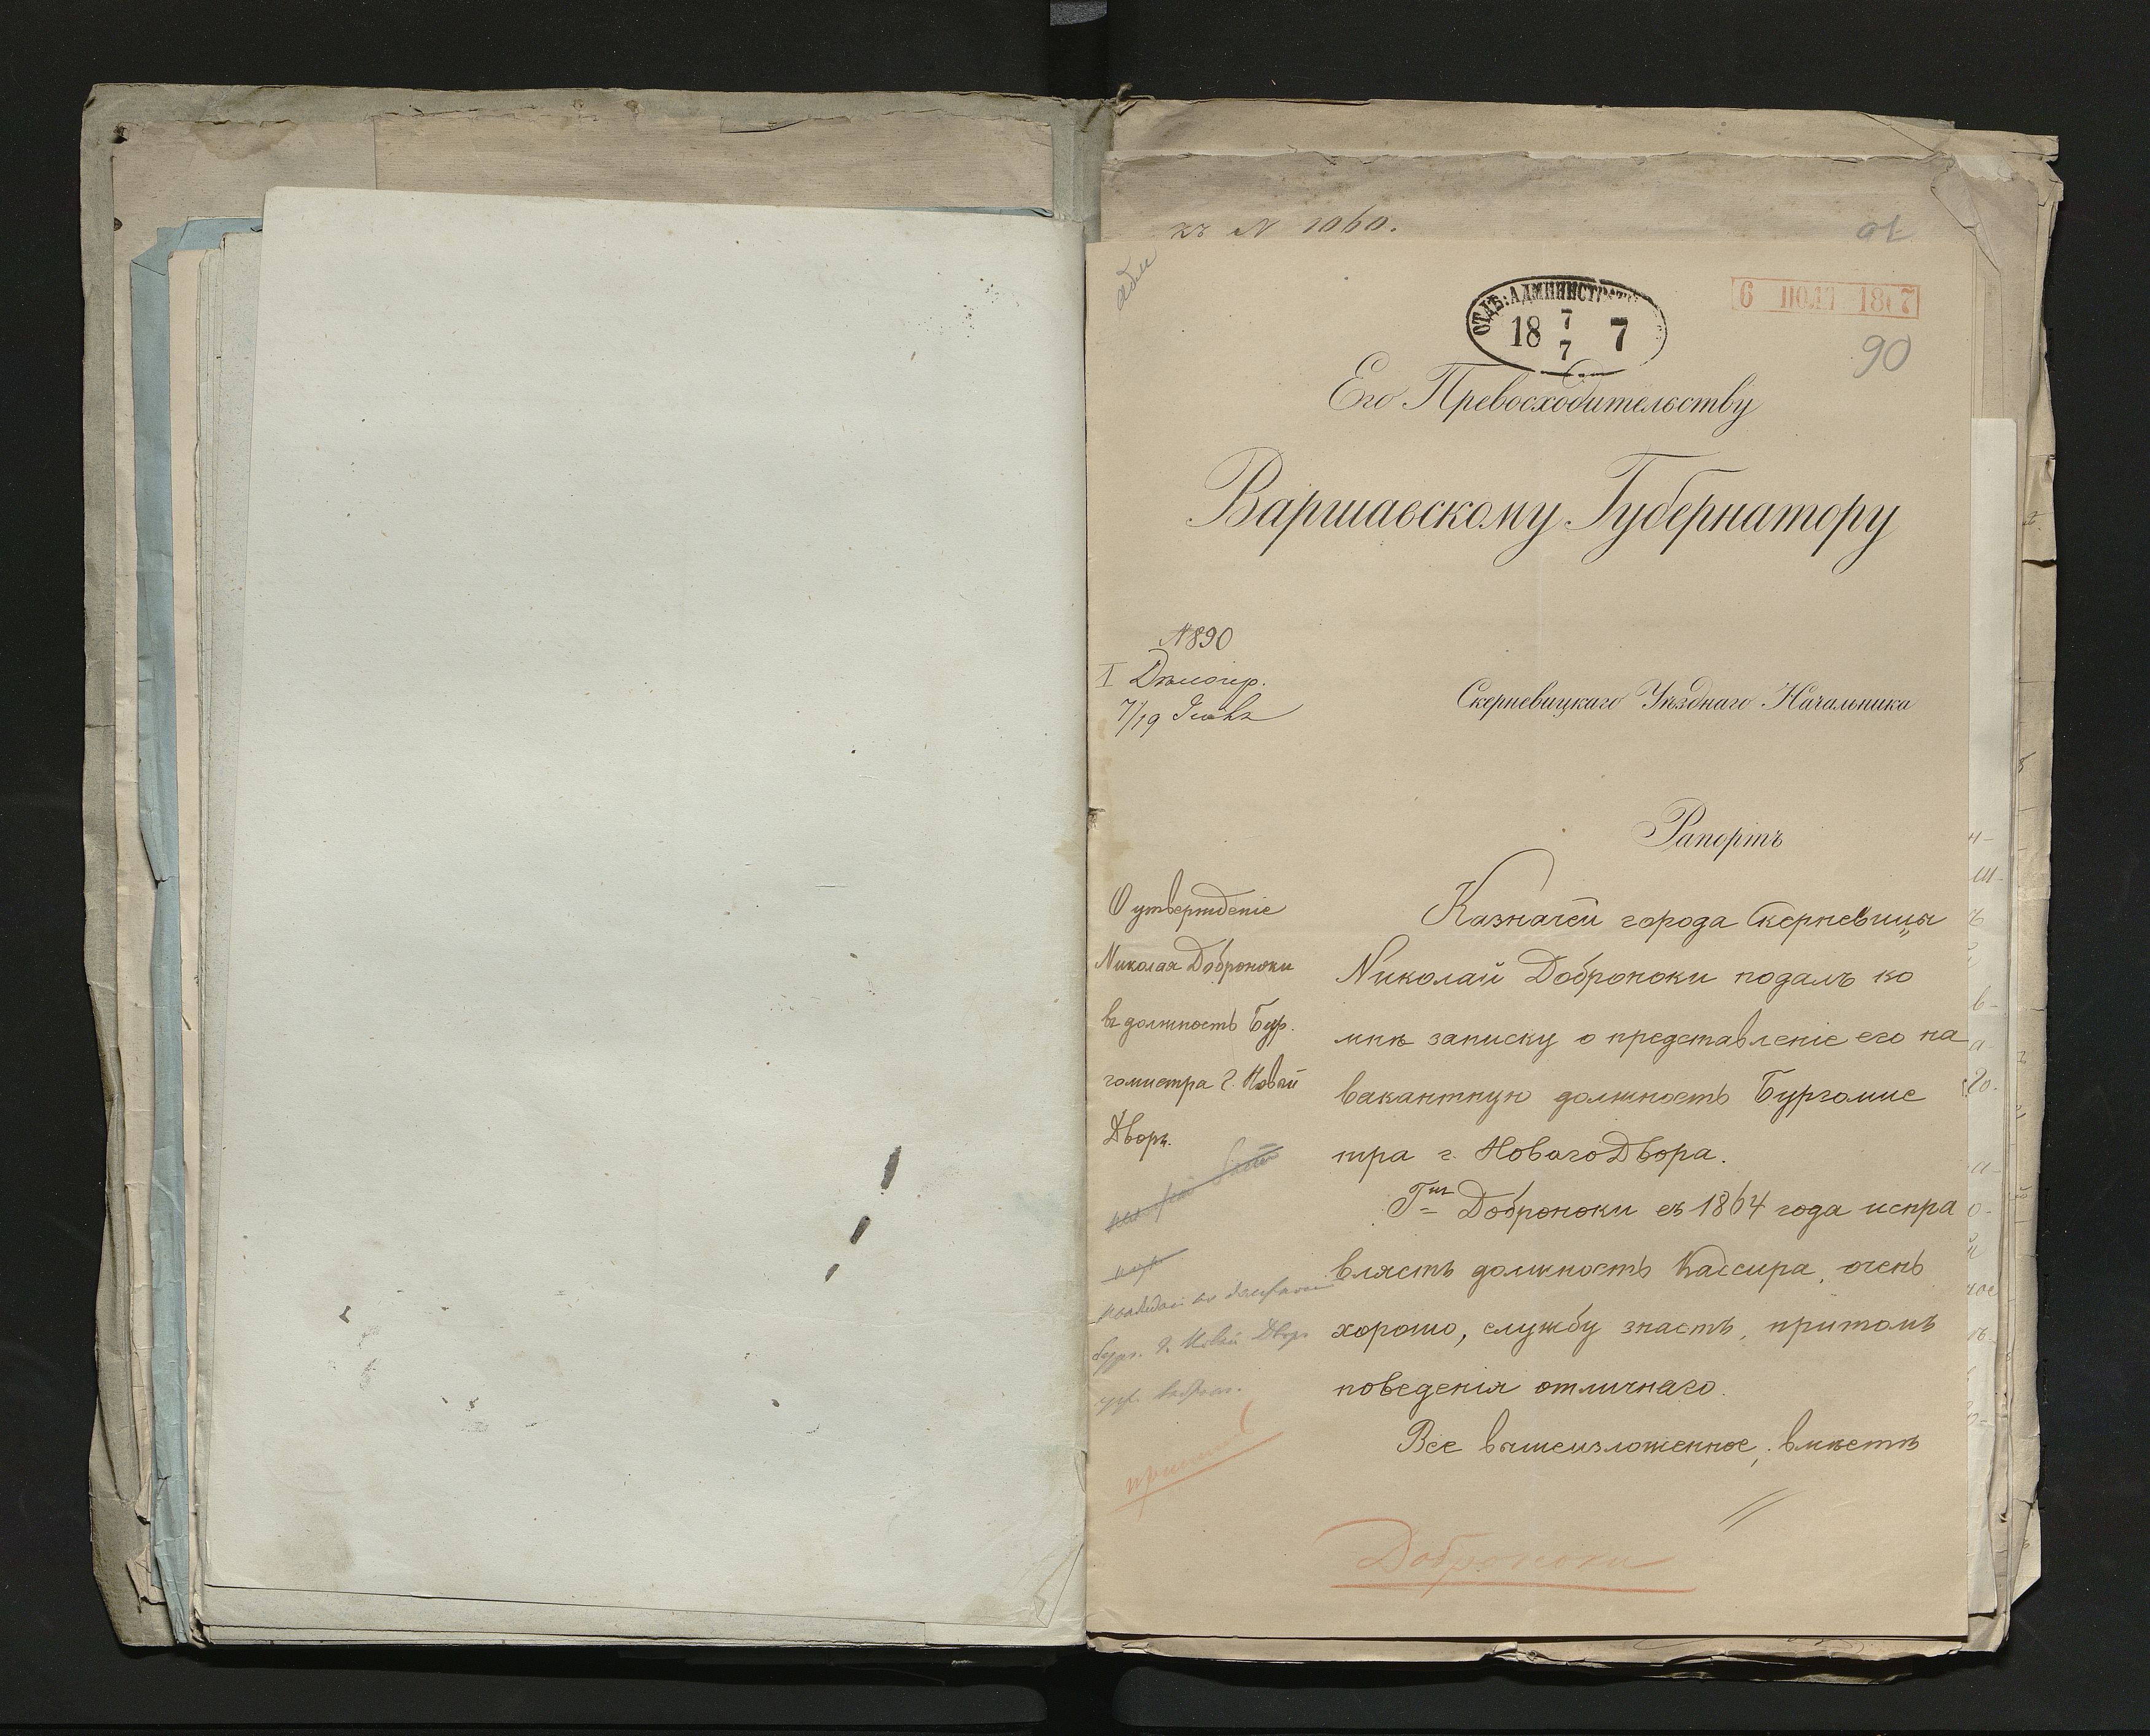 къ N 1060.
ОТДѢ: АДМИНИСТРАТ
18 7/7 7
6 ІЮЛЯ 1867
90
Его Превосходительству
Варшавскому Губернатору
N 890
I Дѣлопр.
7/19
Скерневицкаго Уѣзднаго Начальника
Рапортъ
О утвержденіе
Николая Доброноки
въ должность Бур.
гомистра г. Новый
Дворъ.
Казначей города Скерневицы
Николай Доброноки подалъ ко
мнѣ записку о представленіе его на
вакантную должность Бургомис
тра г. Новаго Двора.
Гнъ Доброноки съ 1864 года испра
вляетъ должность Кассира, очень
хорошо, службу знаетъ, притомъ
поведенія отличнаго.
Все вышеизложенное, вмѣстѣ
бург. г. Новый Двор
Доброноки